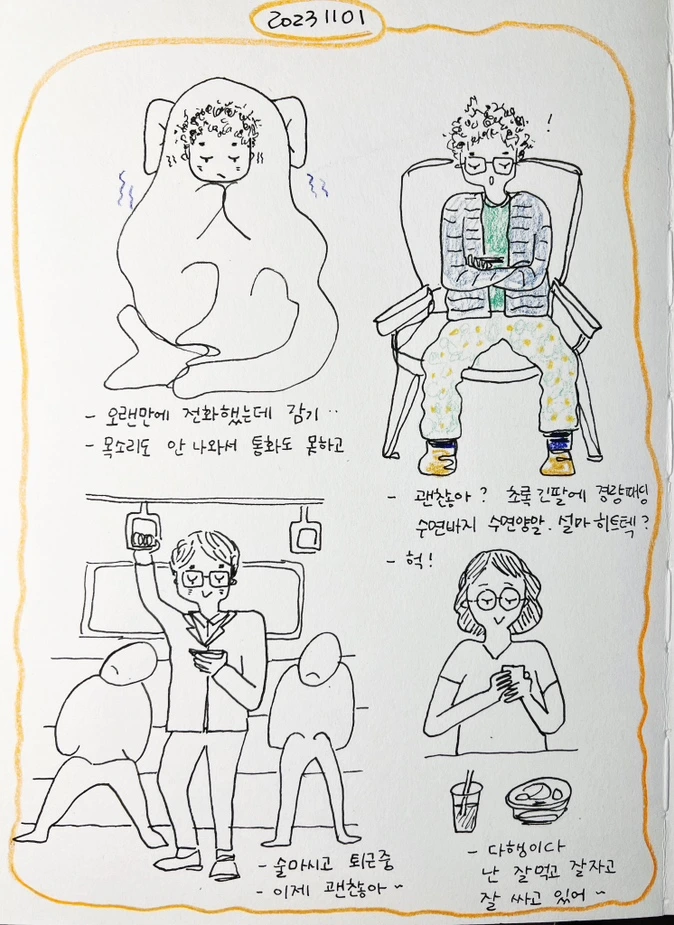 20231101
!
- 오랜만에 전화했는데 감기..
- 목소리도 안 나와서 통화도 못하고
- 괜찮아? 초록긴팔에 경량패딩
수면바지 수면양말. 설마 히트텍?
- 헉!
- 술마시고 퇴근중
- 이제 괜찮아~
- 다행이다
난 잘먹고 잘자고
잘 싸고 있어~